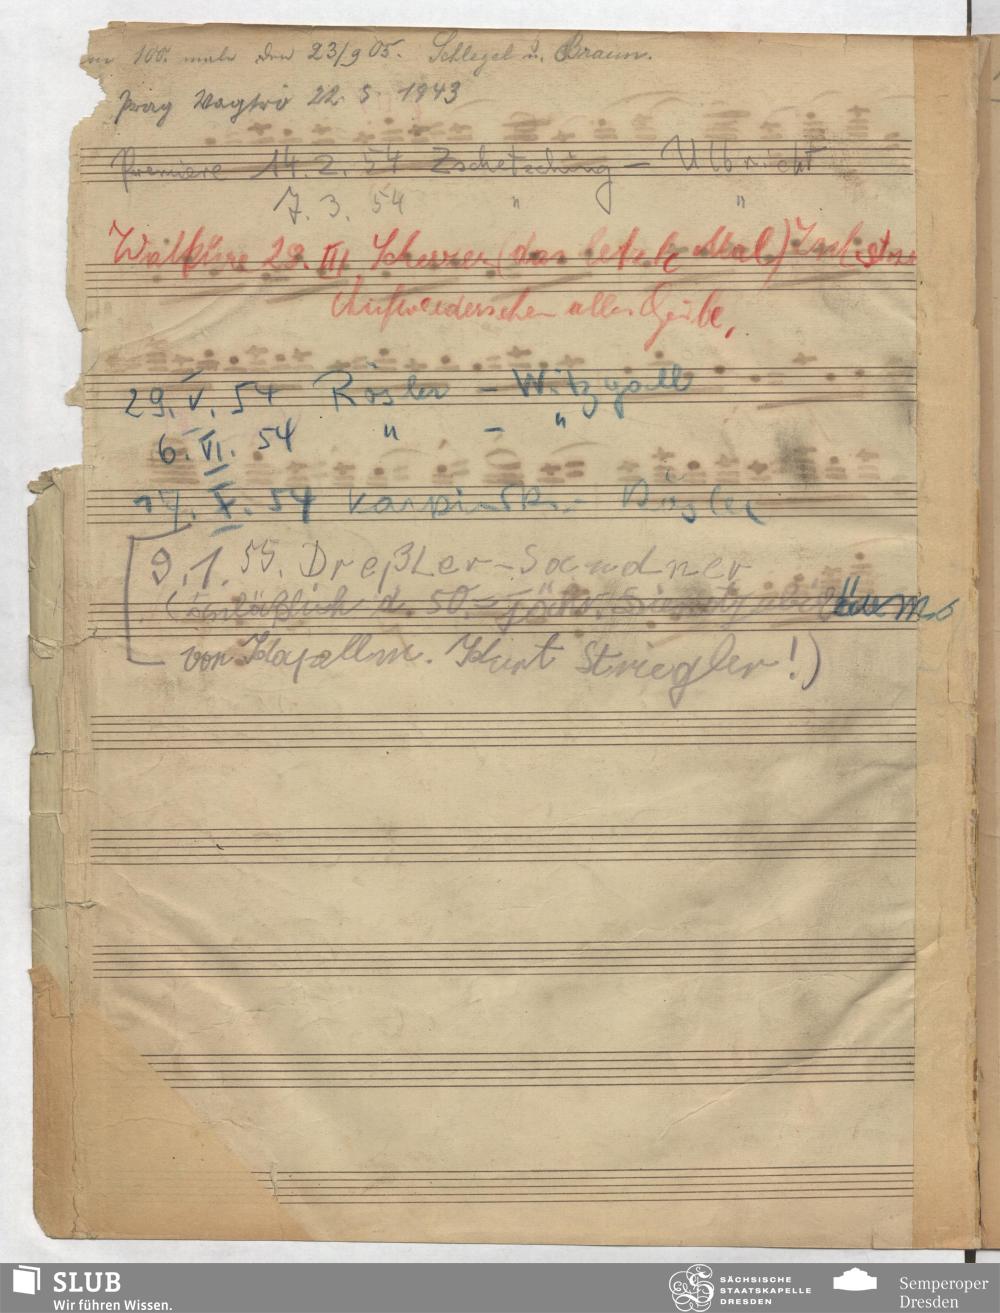 100. male den 23/9 05. Schlegel u. Braun.
Prag 22. 5. 1943
Premiere 14. 2. 54 Zschetzsching – Ulbricht
7. 3. 54 " "
Walküre 29. III. Scherzer (das letzte Mal)
Aufwiedersehen alles Gute.
29. V. 54 Rösler – Witzgall
6. VI. 54 " – "
17. X. 54 Karpinski – Rösler
[9. 1. 55. Dreßler – Sandner
(anläßlich d. 50 – jähr. Dienstjubiläums
von Kapellm. Kurt Striegler!)
SLUB
Wir führen Wissen.
SÄCHSISCHE
STAATSKAPELLE
DRESDEN
Semperoper
Dresden